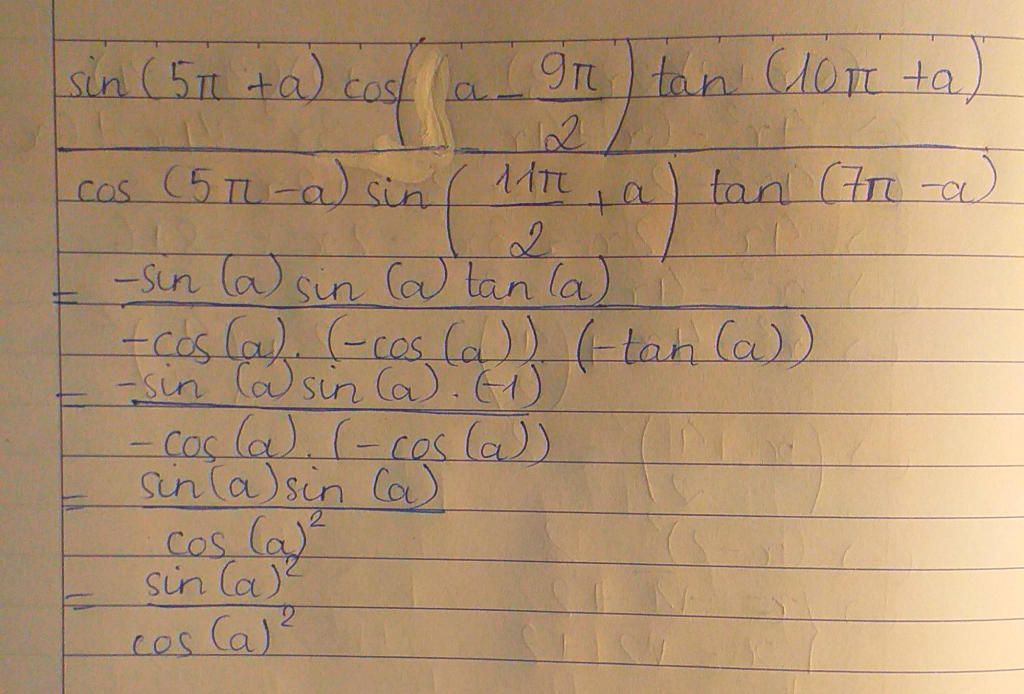 sin (5π + a) cos( a - 9π/2 ) tan (10π + a)
cos (5π - a) sin ( 11π/2 + a ) tan (7π - a)
= -sin (a) sin (a) tan (a)
-cos (a) . (-cos (a)) . (-tan (a))
= -sin (a) sin (a) . (-1)
-cos (a) . (-cos (a))
= sin(a) sin (a)
cos (a)²
= sin (a)²
cos (a)²